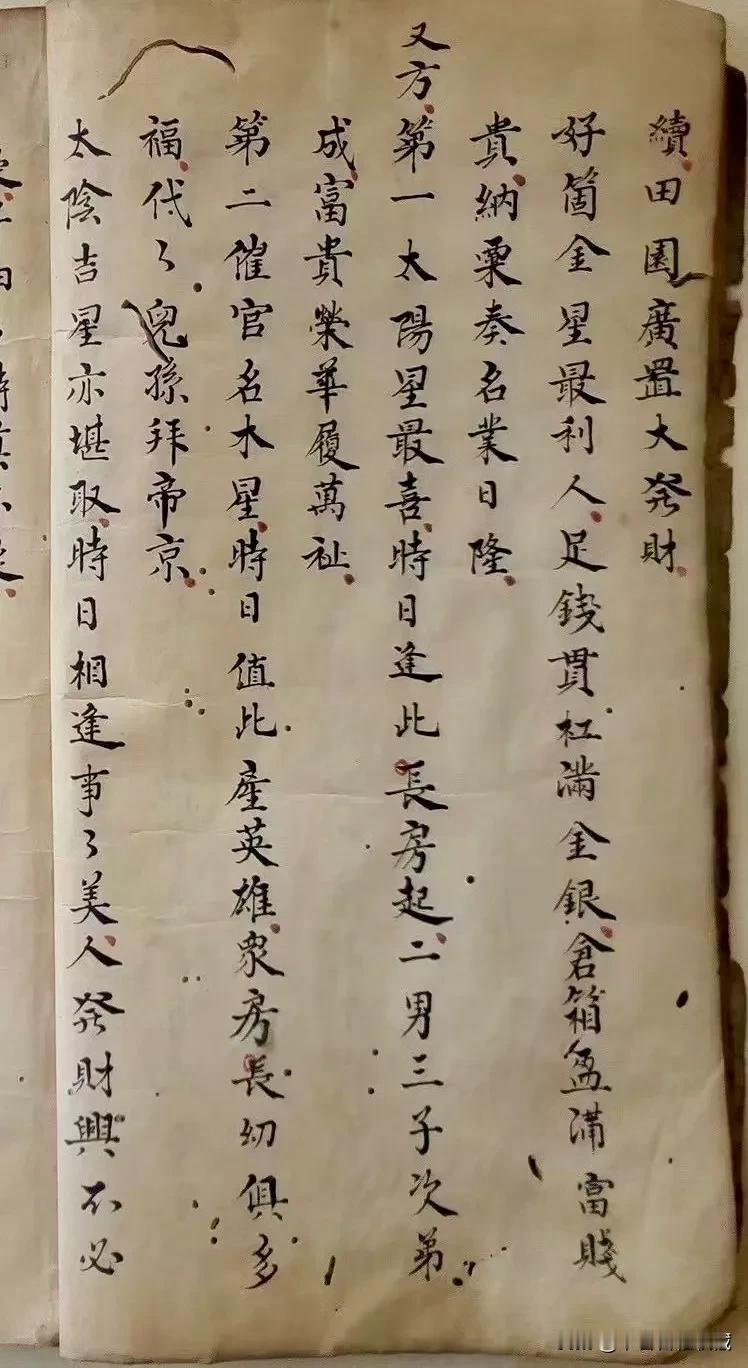 續田園廣置大發財
好箇金星最利人足錢貫杠滿金銀倉箱盈滿富賤
貴納粟奏名業日隆
又方第一太陽星最喜時日逢此長房起二男三子次弟
成富貴榮華履萬祉
第二催官名水星時日值此產英雄眾房長幼俱多
福代々兒孫拜帝京
太陰吉星亦堪取時日相逢事々美人發財興不必